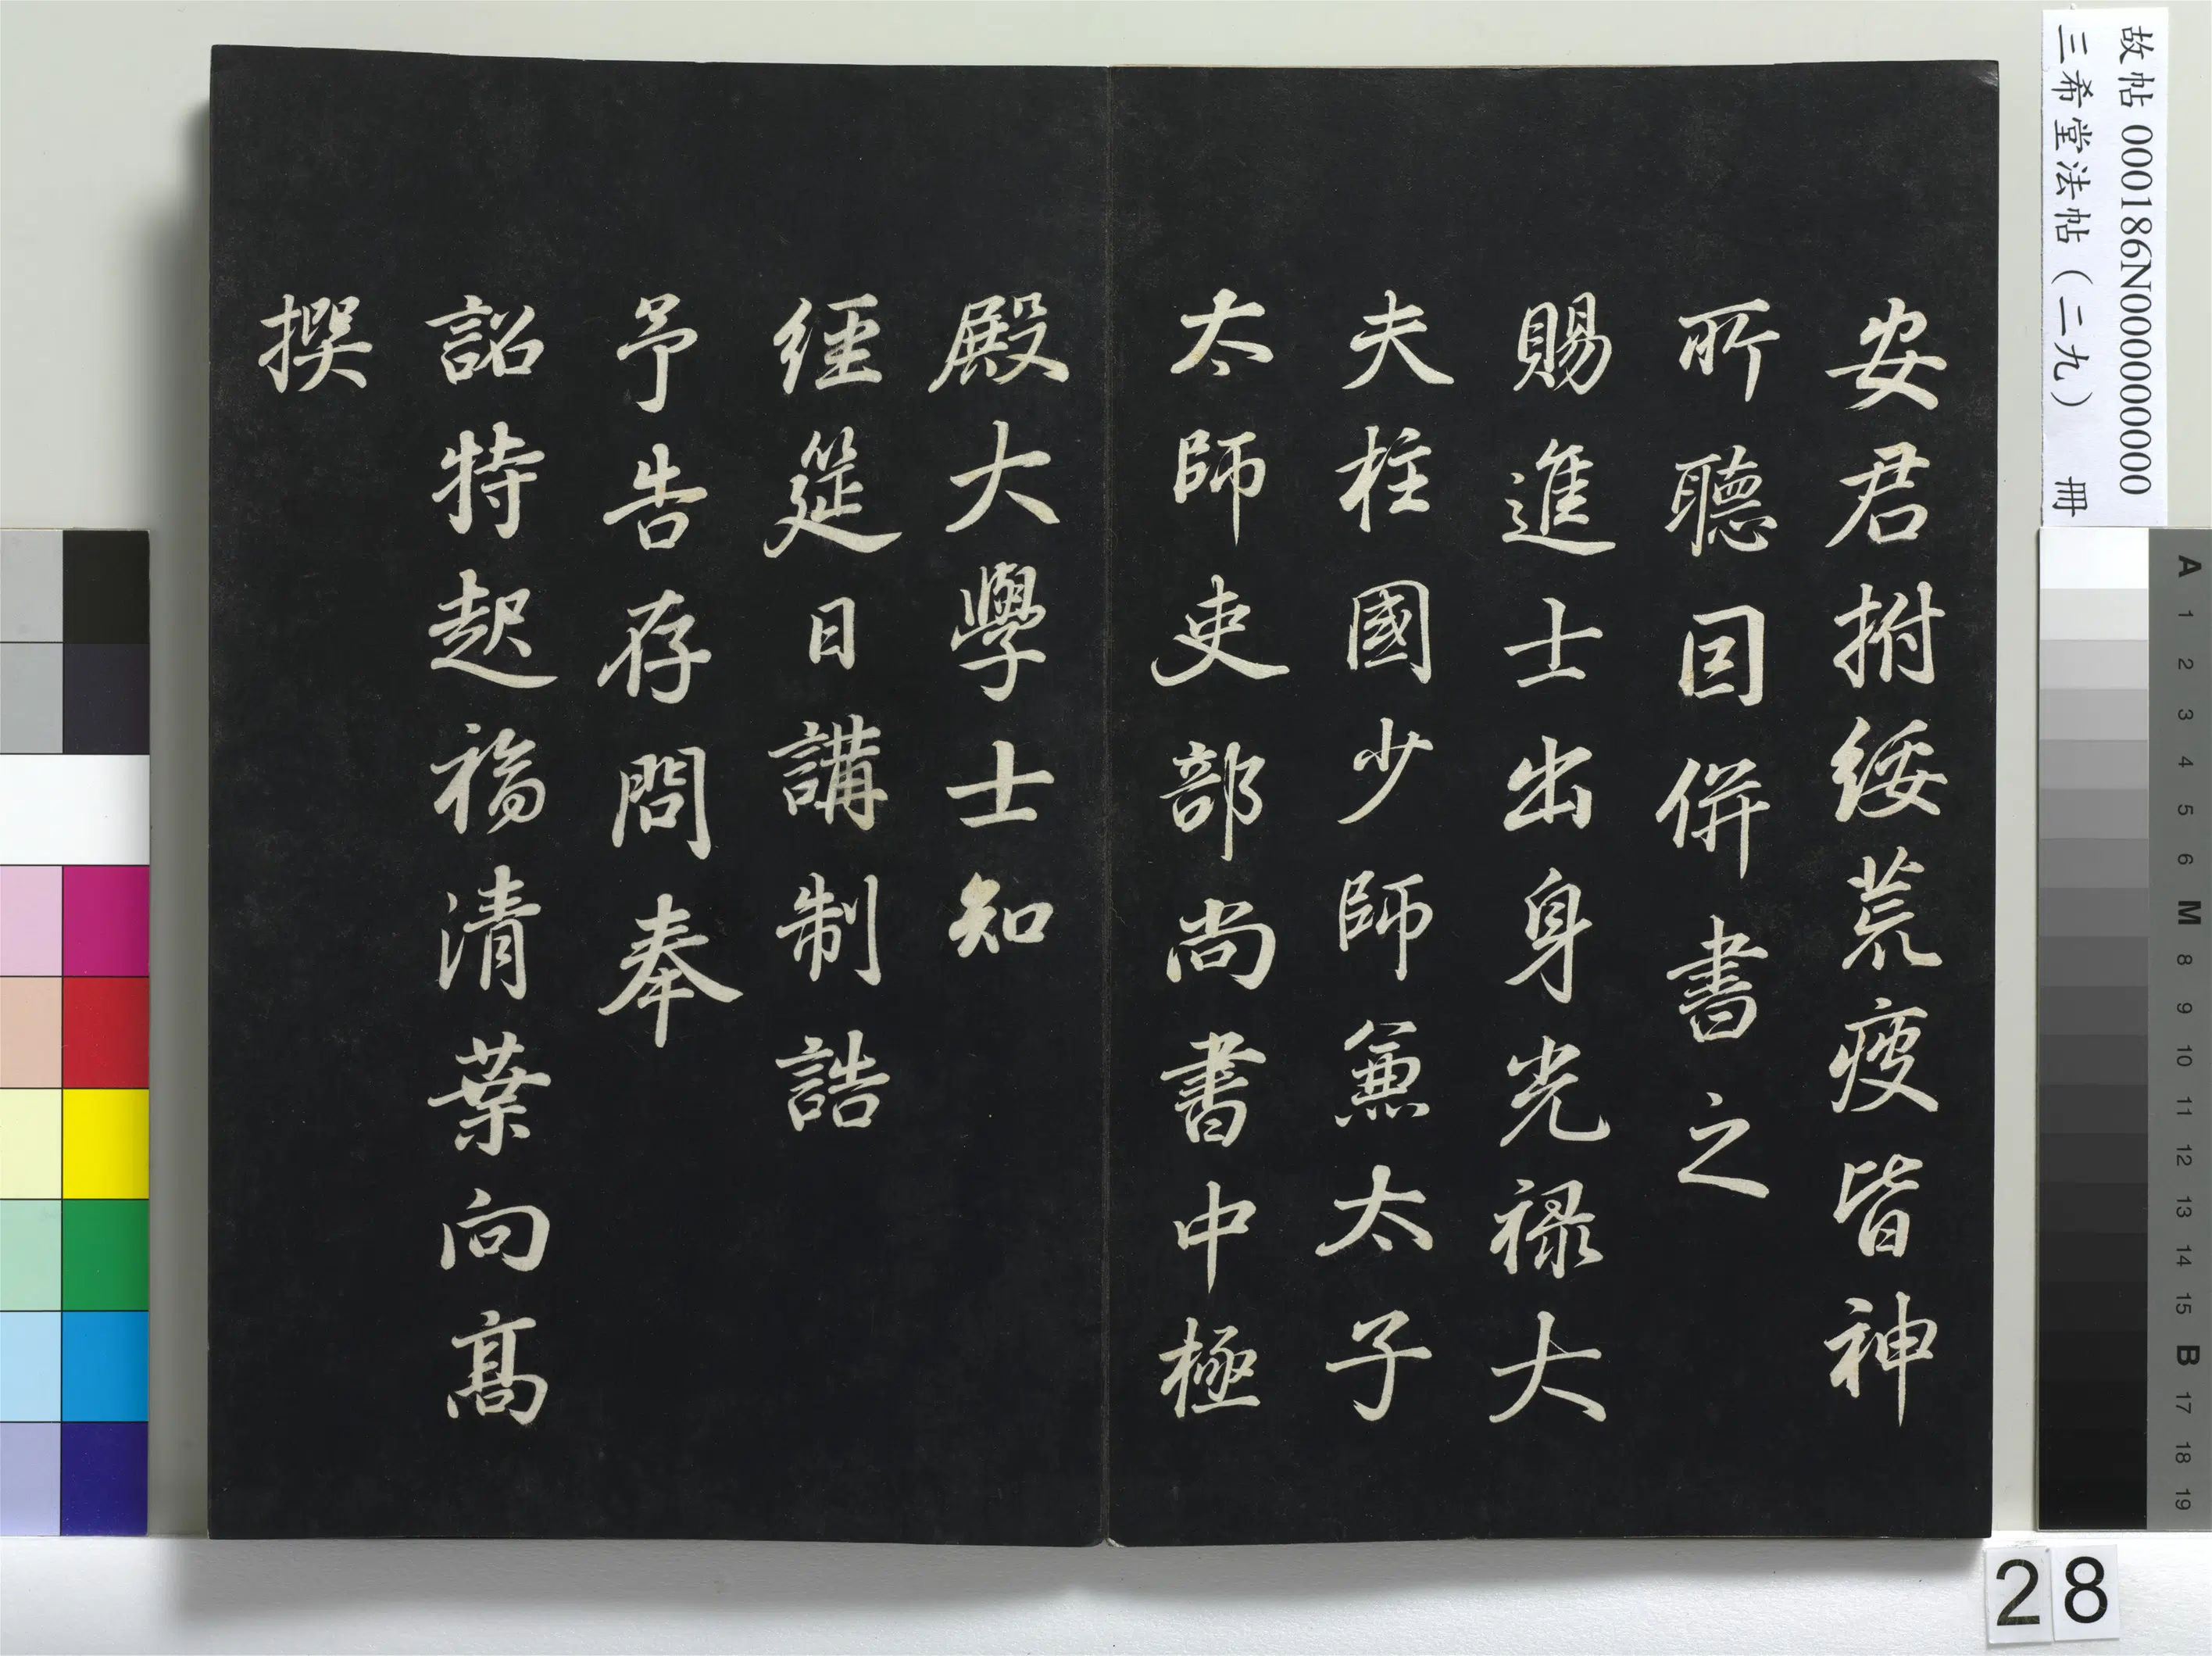 安君拊綏荒疫皆神
所聽囙併書之
賜進士出身光禄大
夫柱國少師兼太子
太師吏部尚書中極
殿大學士知
經筵日講制誥
予告存問奉
詔特起福清葉向髙
撰
故帖 000186N000000000
三希堂法帖（二九） 冊
A 1 2 3 4 5 6 M 8 9 10 11 12 13 14 15 B 17 18 19
28